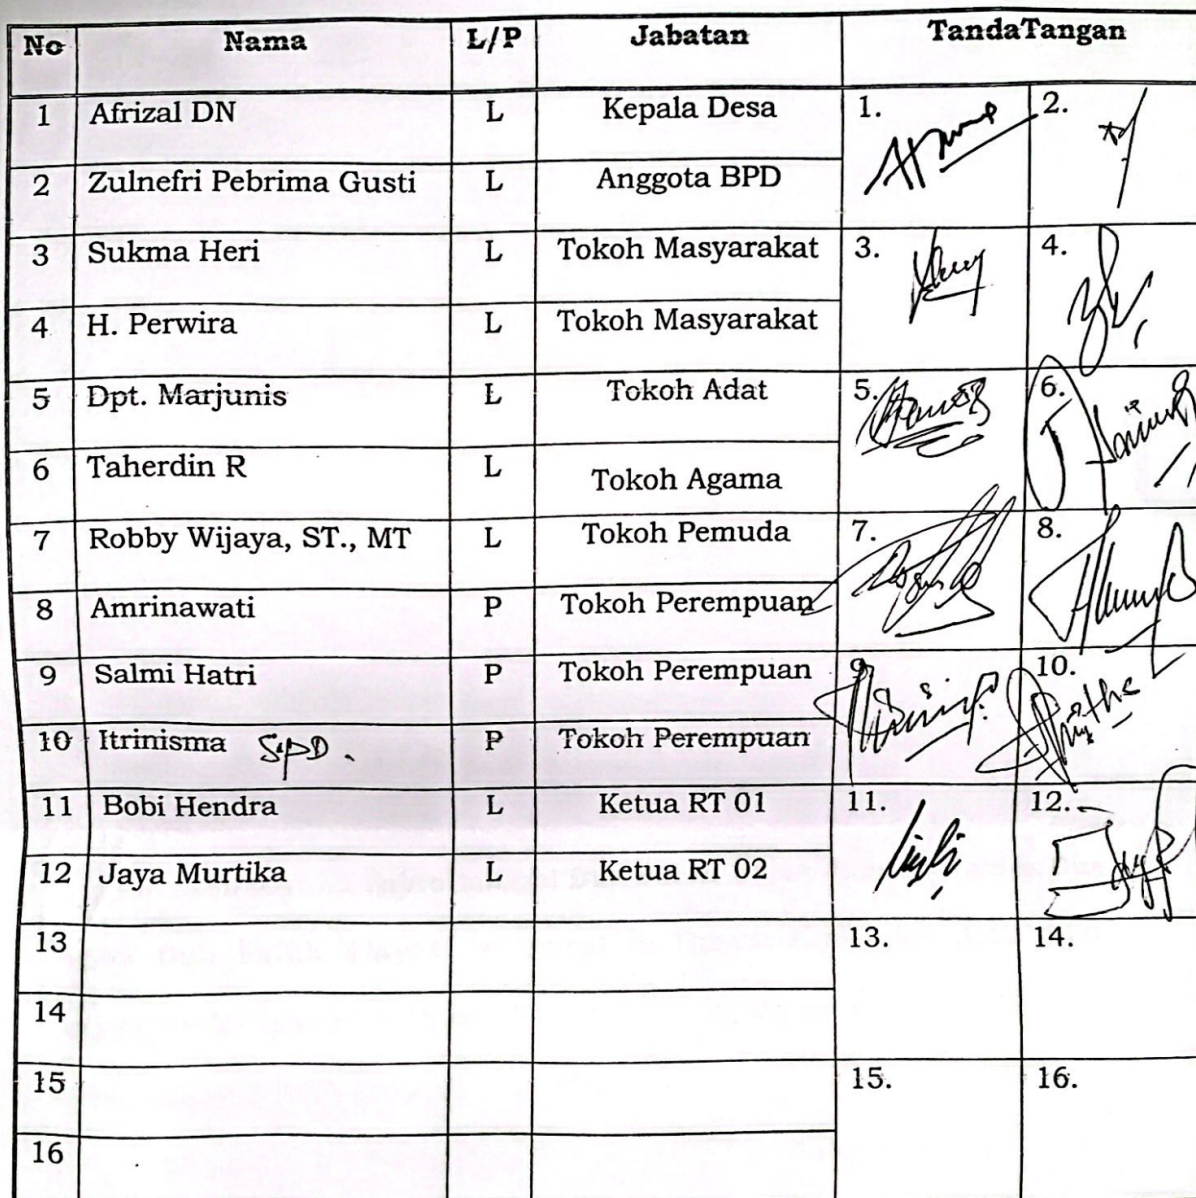 No Nama L/P Jabatan TandaTangan
1 Afrizal DN L Kepala Desa 1. 2.
2 Zulnefri Pebrima Gusti L Anggota BPD
3 Sukma Heri L Tokoh Masyarakat 3. 4.
4 H. Perwira L Tokoh Masyarakat
5 Dpt. Marjunis L Tokoh Adat 5. 6.
6 Taherdin R L Tokoh Agama
7 Robby Wijaya, ST., MT L Tokoh Pemuda 7. 8.
8 Amrinawati P Tokoh Perempuan
9 Salmi Hatri P Tokoh Perempuan 9. 10.
10 Itrinisma S.pD. P Tokoh Perempuan
11 Bobi Hendra L Ketua RT 01 11. 12.
12 Jaya Murtika L Ketua RT 02
13 13. 14.
14
15 15. 16.
16